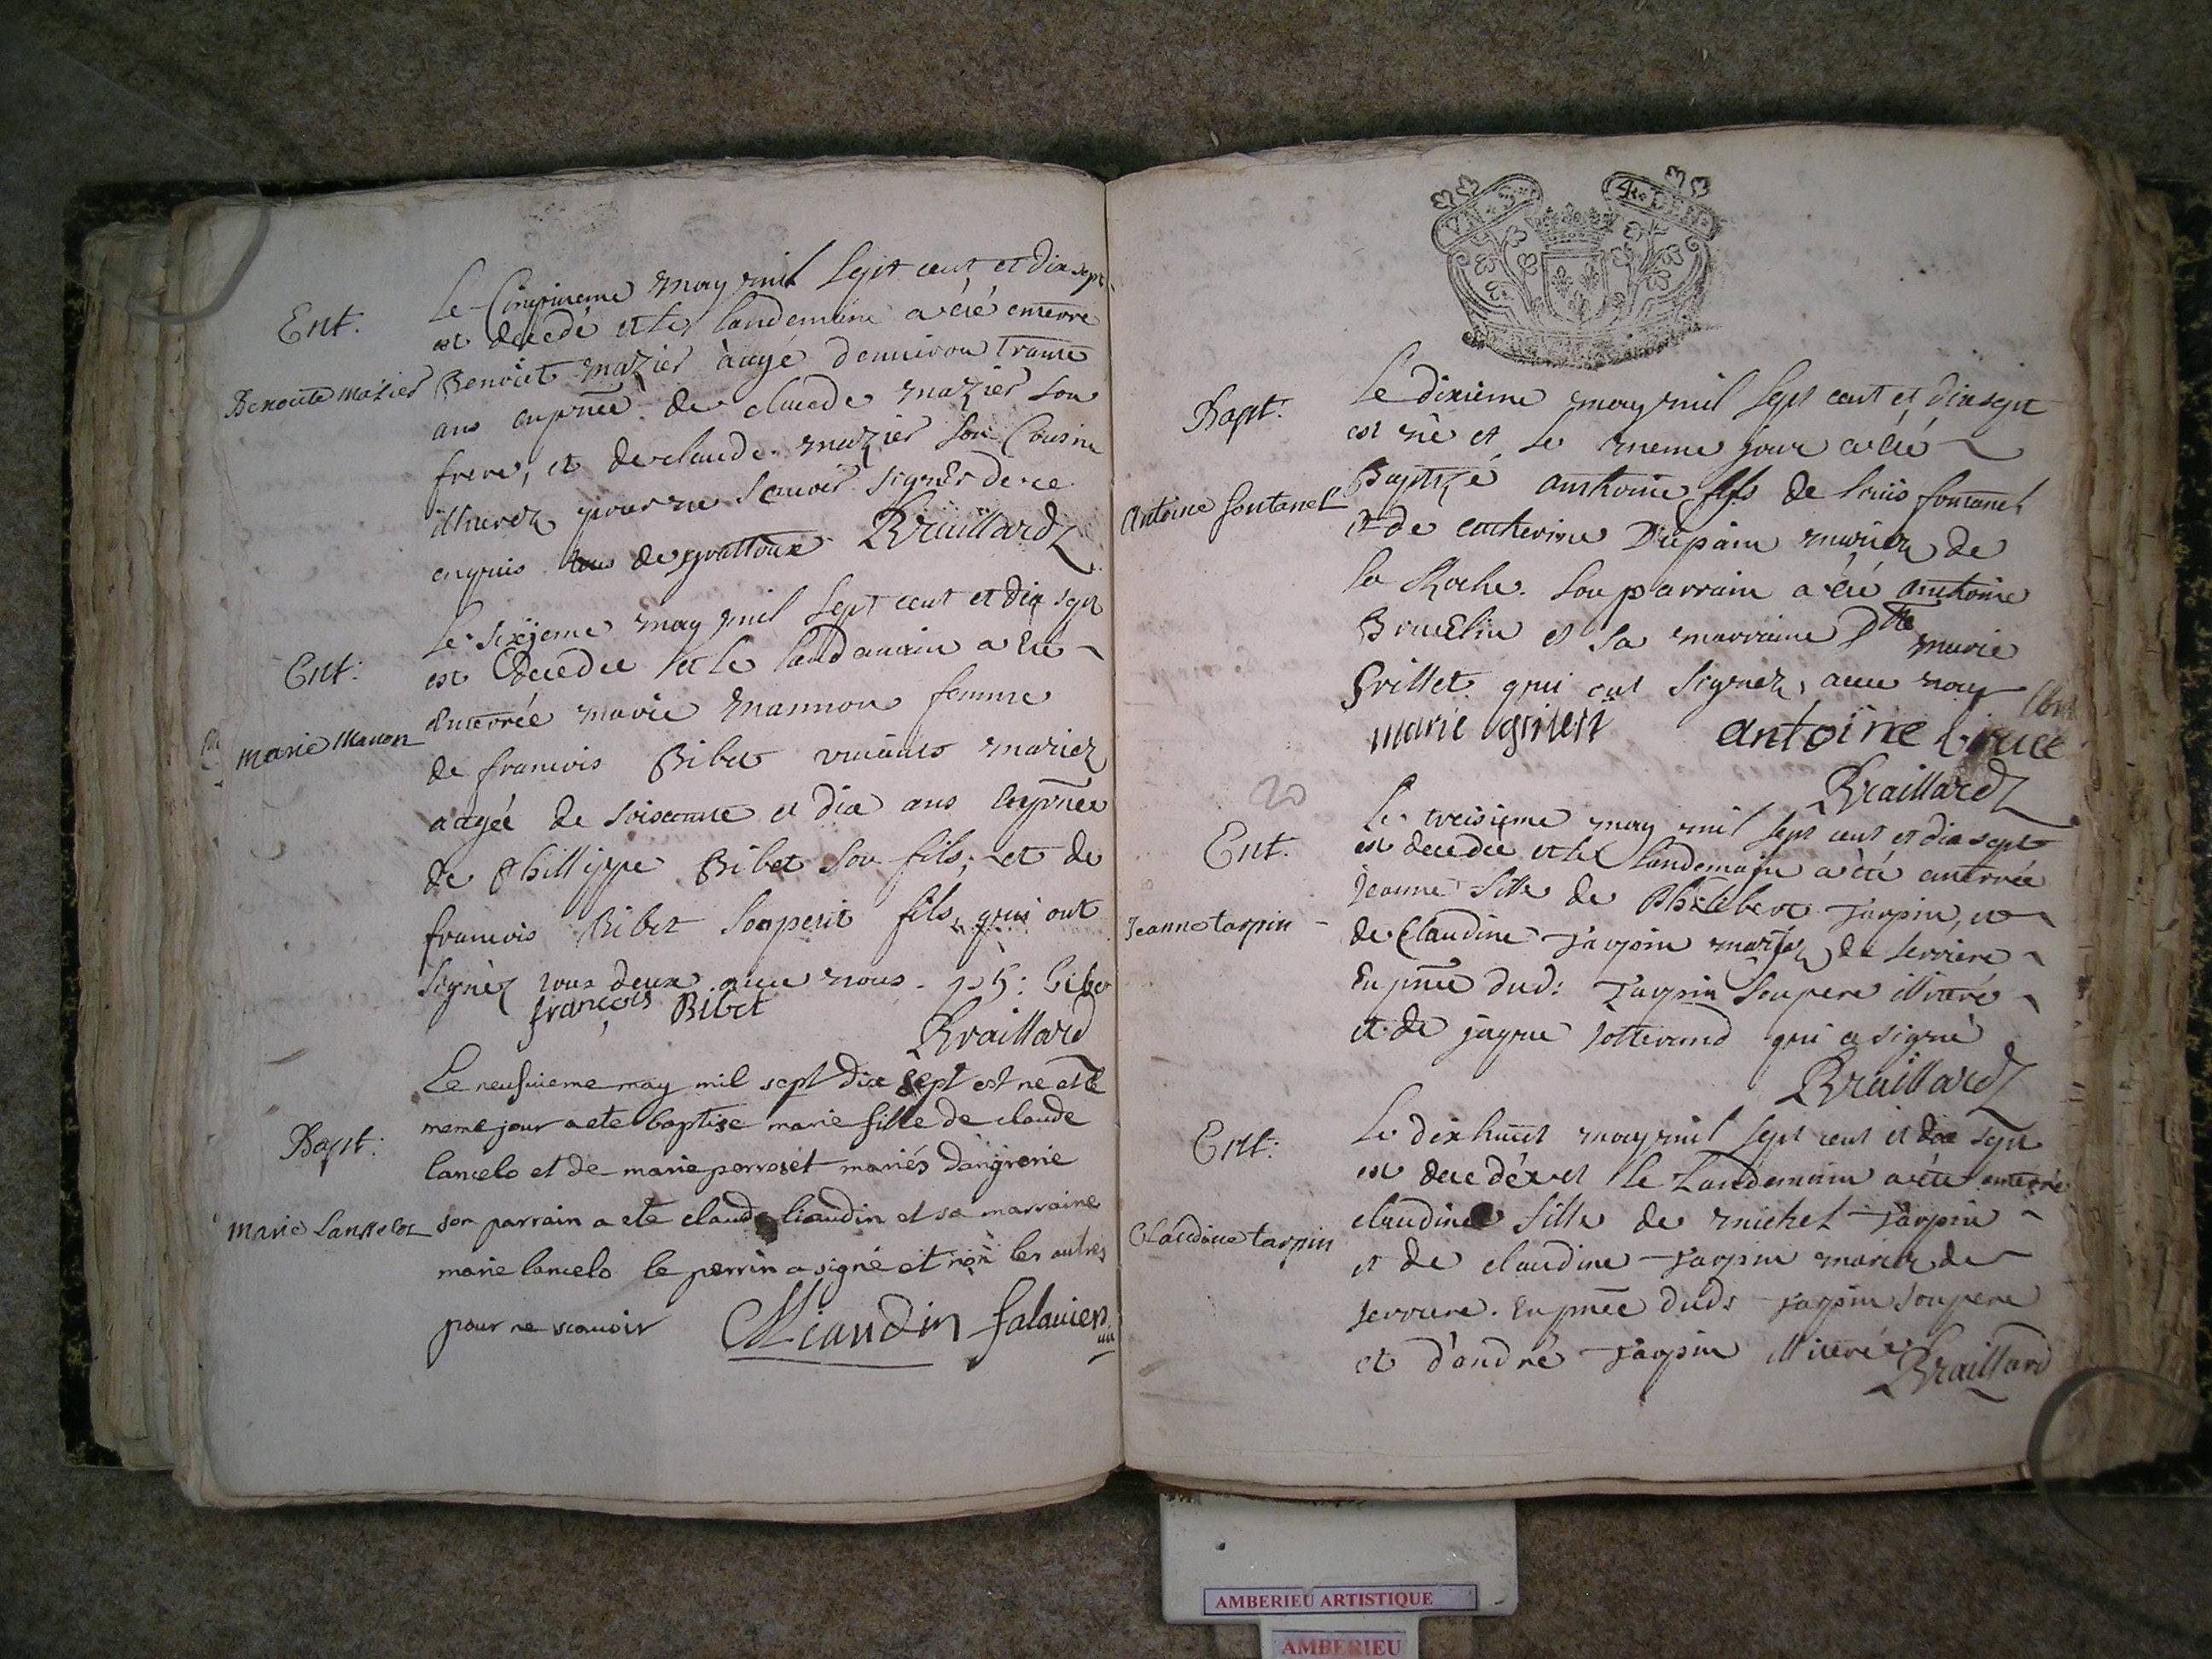 Ent.
Benoite Mazier
Le Cinquieme may mil sept cent et dix sept
est decedé et le landemain a été enterré
Benoict mazier aagé denuiron trante
ans en pñce de claude mazier son
frere, et de claude mazier son Cousin
illiterez pour ne scauoir signer de ce
enquis de grattoux Braillard
Ent:
Marie Manon
Le sixieme may mil sept cent et dix sept
est decedée et le landamain a été
enterrée marie mannon femme
de francois Bibet viuants mariez
aagée de soixante et dix ans en pñce
de Phillippe Bibet son fils, et de
francois Bibet son petit fils, qui ont
signéz tous deux auec nous.
françois Bibet
Braillard
Bapt:
Marie Lansselot
Le neufuieme may mil sept dix sept est ne et le
meme jour a ete baptise marie fille de claude
lancelo et de marie perroset mariés dangrerie
son parrain a ete claude liaudin et sa marraine
marie lancelo le perrin a signé et non les autres
pour ne scauoir CLiaudin falauier
VAL 4 DEN
Bapt:
Antoine fontanel
Le dixieme may mil sept cent et dix sept
est né et le meme jour a été
Baptizé anthoine fils de louis fontanel
et de catherine Dupain mariez de
la Roche. son parrain a été anthoine
Bruelin et sa marraine Dlle marie
Grillet qui ont signez, auec nous
marie grilett antoine bruce
Braillard
20
Ent.
Jeanne tarpin
Le treisieme may mil sept cent et dix sept
est decedée et le landemain a été enterrée
Jeanne fille de Philibert Tarpin, et
de Claudine Tarpin mariez de serriere
En pñce dud: Tarpin son pere illiteré
et de jaque jotterand qui a signé
Braillard
Ent:
Claudine tarpin
Le dixhuict may mil sept cent et dix sept
est decedée et le Landemain a été enterré
claudine fille de michel Tarpin
et de claudine Tarpin mariez de
serriere. En pñce dudt Tarpin son pere
et d'andré Tarpin illiterés Braillard
AMBERIEU ARTISTIQUE
AMBERIEU